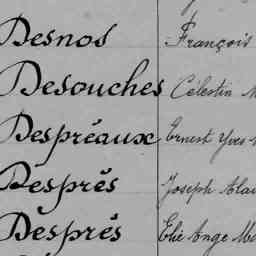 Desnos François
Desouches Célestin
Despréaux Ernest Yves
Després Joseph
Després Elie Ange